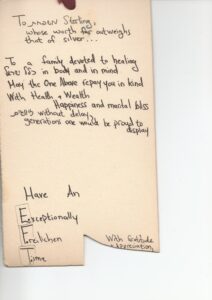 To Sterling,
whose worth far outweighs
that of silver...
To a family devoted to healing
in body and in mind
May the One Above repay you in kind
With Health & Wealth
Happiness and marital bliss
without delay,
generations one would be proud to
display
Have An
Exceptionally
Freilichen
Time
With Gratitude
& Appreciation